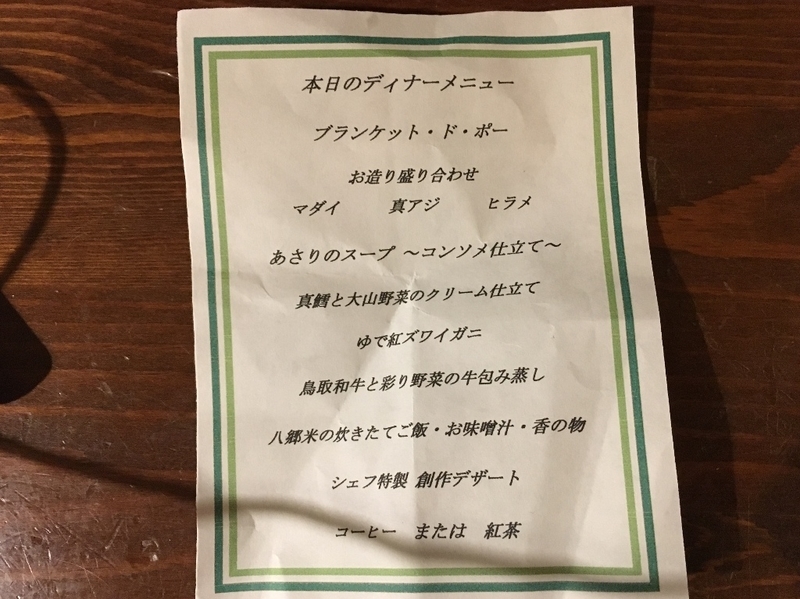 本日のディナーメニュー
ブランケット・ド・ポー
お造り盛り合わせ
マダイ 真アジ ヒラメ
あさりのスープ ～コンソメ仕立て～
真鱈と大山野菜のクリーム仕立て
ゆで紅ズワイガニ
鳥取和牛と彩り野菜の牛包み蒸し
八郷米の炊きたてご飯・お味噌汁・香の物
シェフ特製 創作デザート
コーヒー または 紅茶